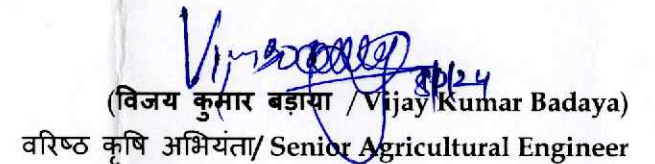 (विजय कुमार बड़ाया /Vijay Kumar Badaya)
वरिष्ठ कृषि अभियंता/ Senior Agricultural Engineer